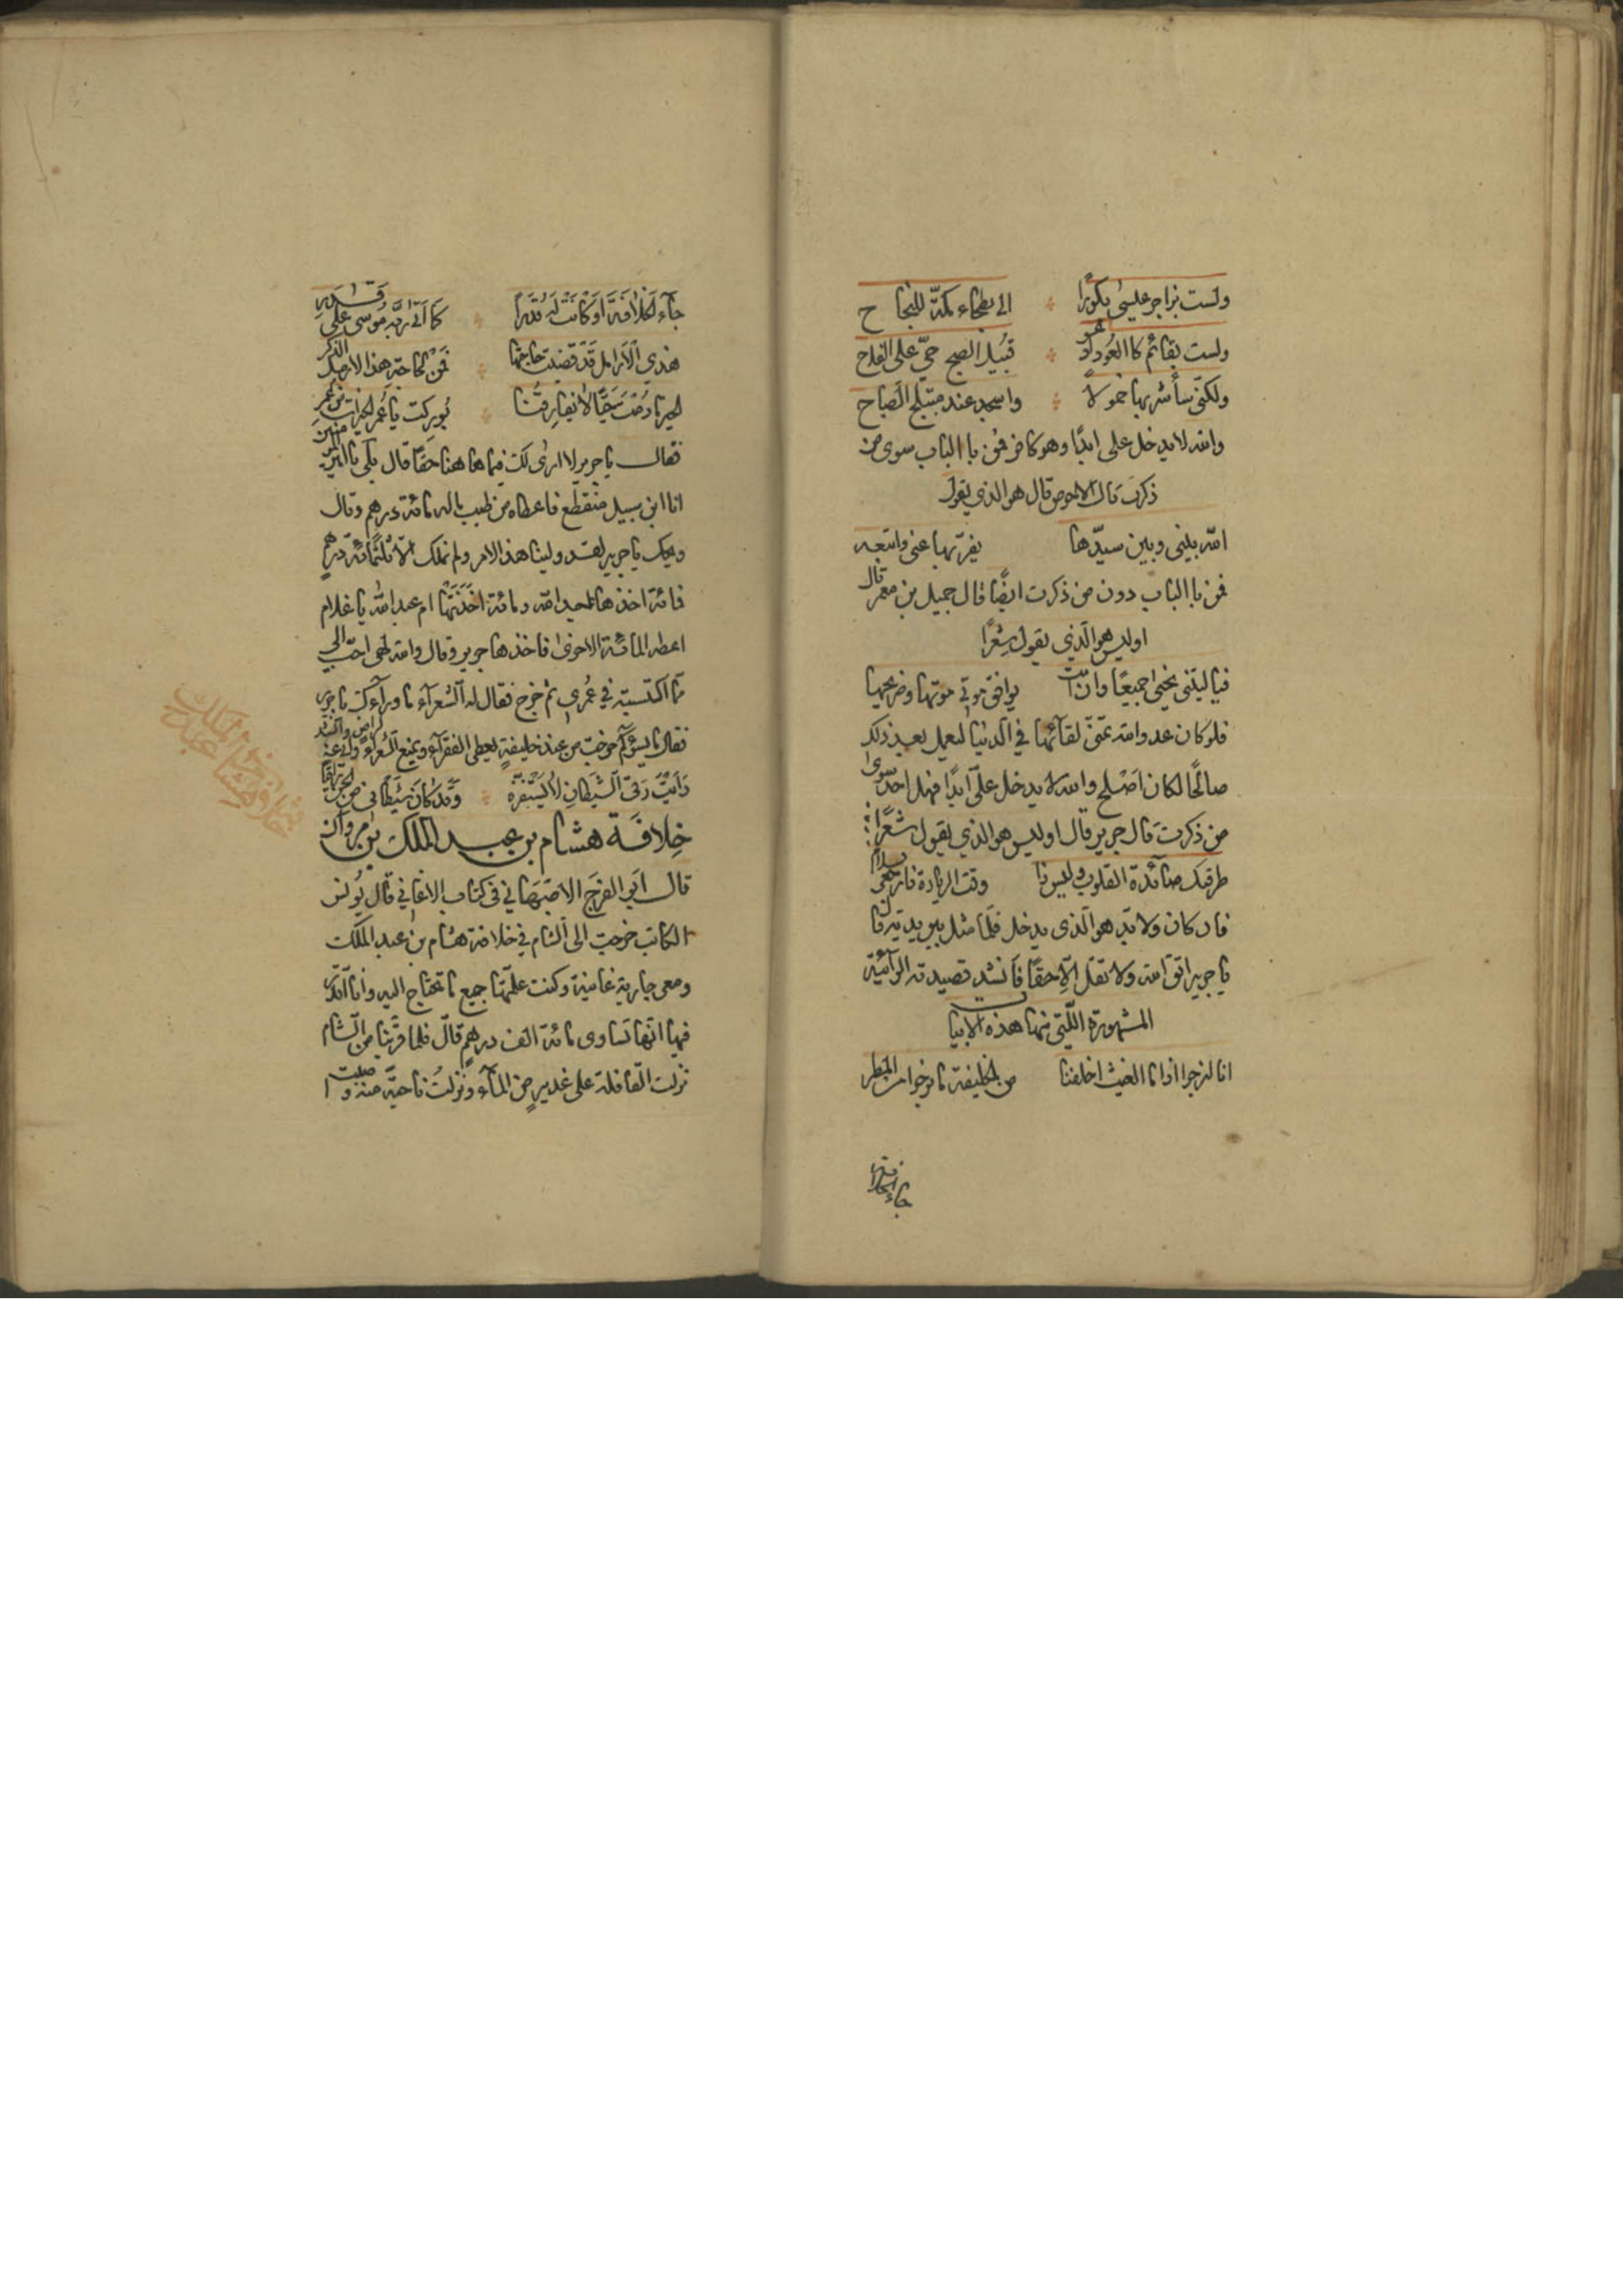 ولست بزاجر عليسى بكورًا الى بطحاء مكّة للنجا ح
ولست بقائم كالعود ادعو قبيل الصبح حيّ على الفلاح
ولكنّى سأشربها شمولا واسجد عند مبتلج الصباح
والله لا يدخل على ابدًا وهو كافر فمن باالباب سوى من
ذكرت قال الاحوص قال هو الذي يقول
الله بينى وبين سيدّها يفرّبها عنى واتبعه
فمن باالباب دون من ذكرت ايضًا قال جميل بن معمر قال
اوليس هو الّذي يقول شعرًا
فيا ليتنى نحيى جميعًا وان نمت يوافق موتى موتها وضريحها
فلو كان عدو الله تمنّى لقائها في الدنيا ليعمل بعد ذلك
صالحًا لكان اصلح والله لا يدخل علىّ ابدًا فهل احد سوى
من ذكرت قال جرير قال اوليس هو الذي يقول شعرًا
طرقتك صائدة القلوب وليس ذا وقت الزيادة فارجعى بسلام
فان كان ولا بّد هو الّذى يدخل فلمّا مثل بين يديه قال
يا جرير اتق الله ولا تقل الّا حقًا فانشد قصيدته الرآئية
المشهورة اللّتى منها هذه الابيات
انا لنرجوا اذا ما الغيث اخلفنا من الخليفة ما نرجوا من المطر
جاء الخلافة
جآء الخلافة او كانت له قدرا كما اتى ربّه موسى على قدر
هذي الارامل قد قضيت حاجتها فمن لحاجة هذا الارمل الذكر
الخير ما دمت حيًّا لا يفارقنا بوركت يا عمر الخيرات من عمر
فقال يا جرير لا ارى لك فيما ها هنا حقًا قال بلى يا امير المؤمنين
انا ابن سبيل منقطع فاعطاه من طيب ماله مائة درهم وقال
ويحك يا جرير لقد ولينا هذا الامر ولم نملك الّا ثلثمائة درهم
فمائة اخذها عبد الله ومائة اخذتها ام عبد الله يا غلام
اعطه المائة الاخرى فاخذها جرير وقال والله لهى احبّ الى
ممّا اكتسبته في عمري ثم خرج فقال له الشعرآء ما ورآءك يا جرير
فقال ما يسؤكم خرجت من عند خليفة يعطى الفقرآء ويمنع الشعرآء وانى عنه لراض وانشد
رأيت رقى الشيطان لا يستفزّه وقد كان شيطانى من الجن راقيا
خلافة هشام بن عبد الملك بن مروان
قال ابو الفرج الاصبهاني فى كتاب الاغاني قال يونس
الكاتب خرجت الى الشام في خلافة هشام بن عبد الملك
ومعى جارية غانية وكنت علّمتها جميع ما تحتاج اليه وانا اقدّر
فيها انّها تساوى مائة الف درهم قال فلما قربنا من الشام
نزلت القافلة على غدير من المآء ونزلت ناحية منه و اصلحت
خلافة هشام عبد الملك